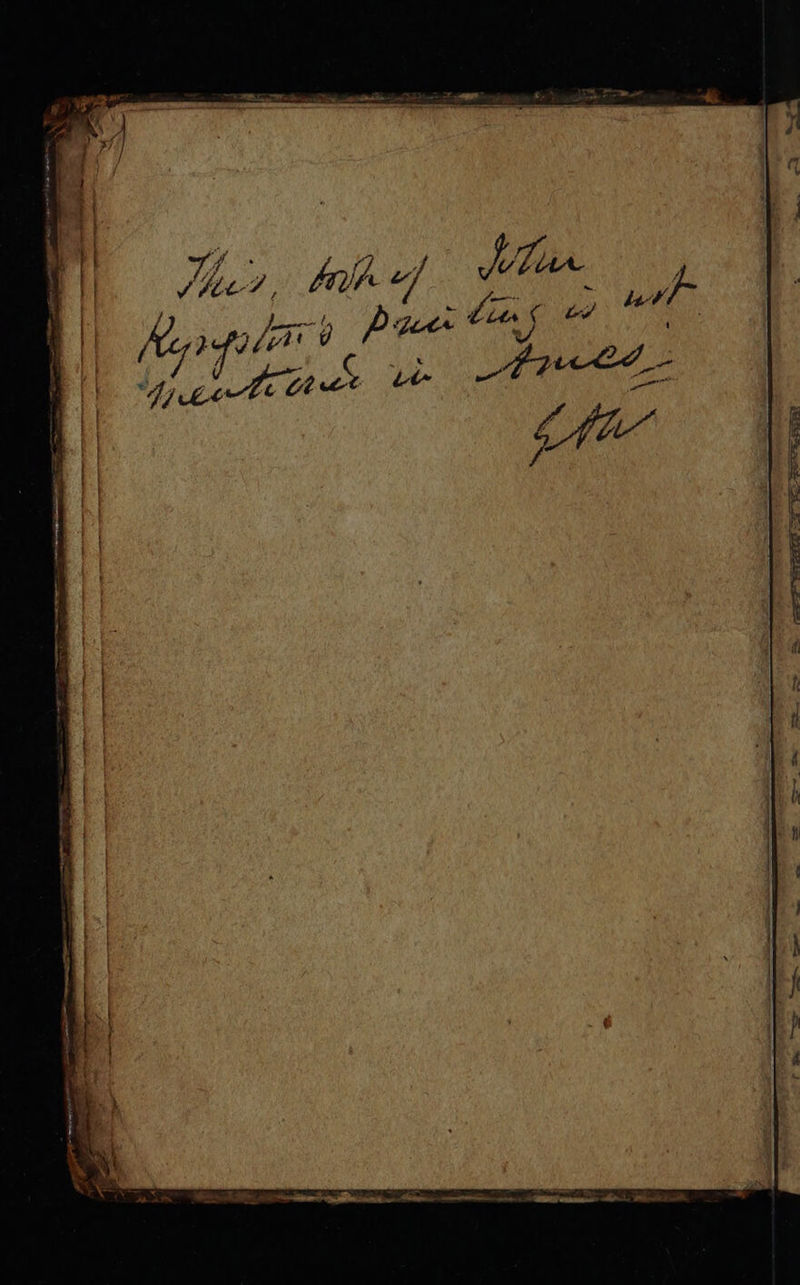 This book of John
Kyngston's Printing is not
mentioned in Ames -